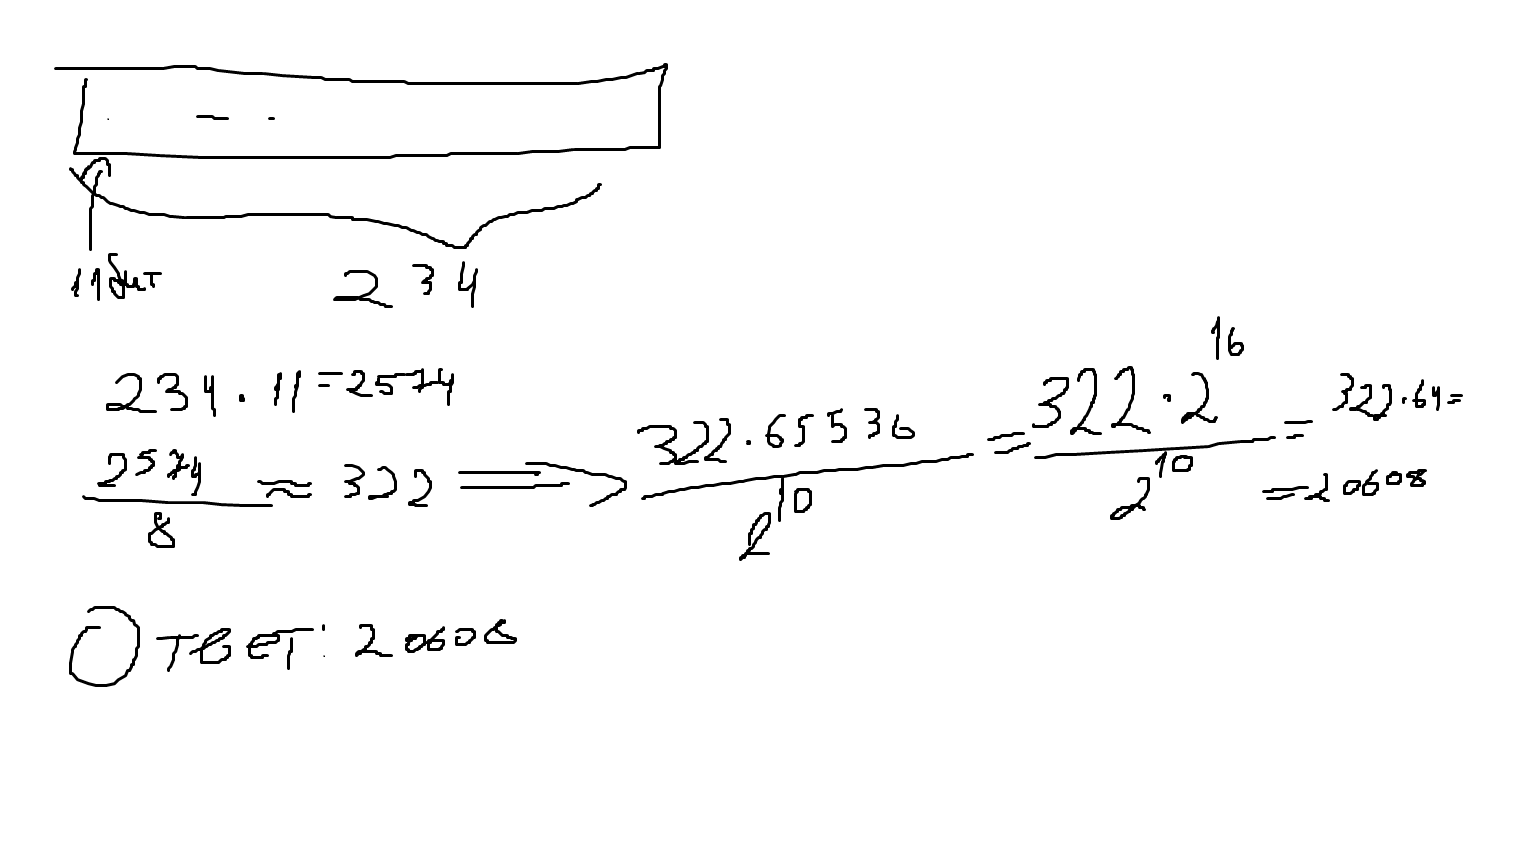 11 бит
234
234 · 11 = 2574
2574/8 ≈ 322 => 322 · 65536/2^10 = 322 · 2^16/2^10 = 322 · 64 =
= 20608
Ответ: 20608